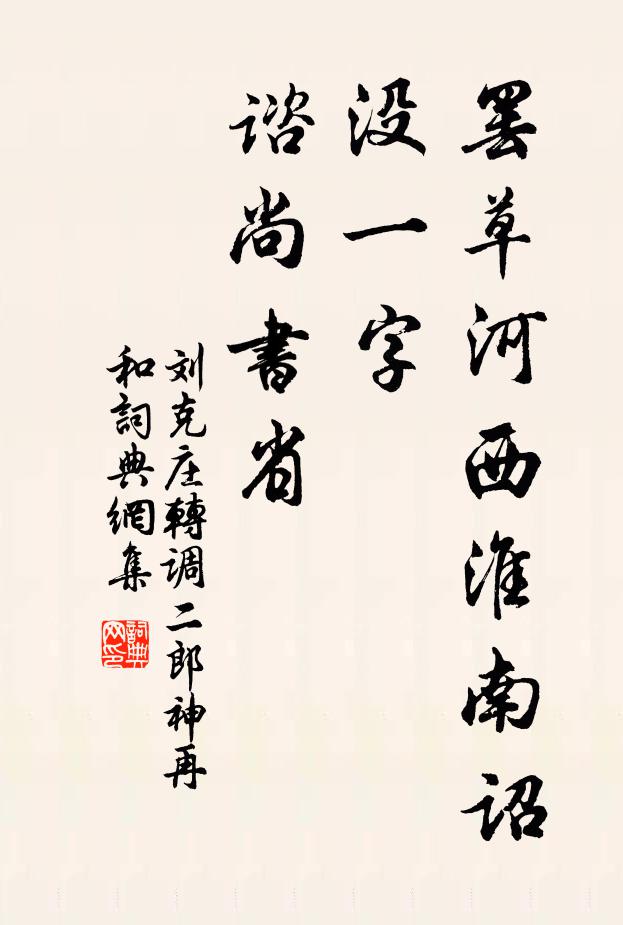 罢草河西淮南詔
没一字
谘尚書省
刘克庄轉调二郎神再
和詞典網集
詞典
网印